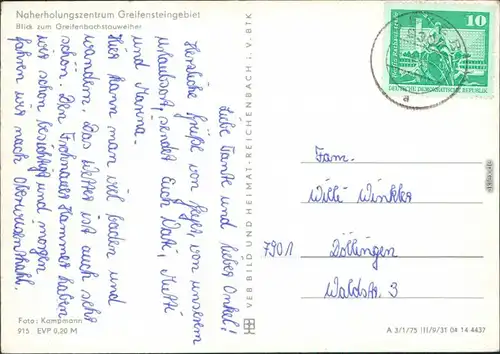 Naherholungszentrum Greifensteingebiet
Blick zum Greifenbachstauweiher
Liebe Tante und lieber Onkel!
Herzliche Grüße von unserem
Urlaubsort, sendet Euch Vati, Mutti
und Marina.
Hier kann man viel baden und
wandern. Das Wetter ist auch sehr
schön. Den Frohnauer Hammer haben
wir schon besichtigt und morgen
fahren wir nach Oberwiesenthal.
Foto: Kampmann
915 EVP 0,20 M
VEB BILD UND HEIMAT REICHENBACH i. V. BTK
10
DEUTSCHE DEMOKRATISCHE REPUBLIK
a
Fam.
Willi Winkler
7901 Döllingen
Waldstr. 3
A 3/1/75 III/9/31 04 14 4437